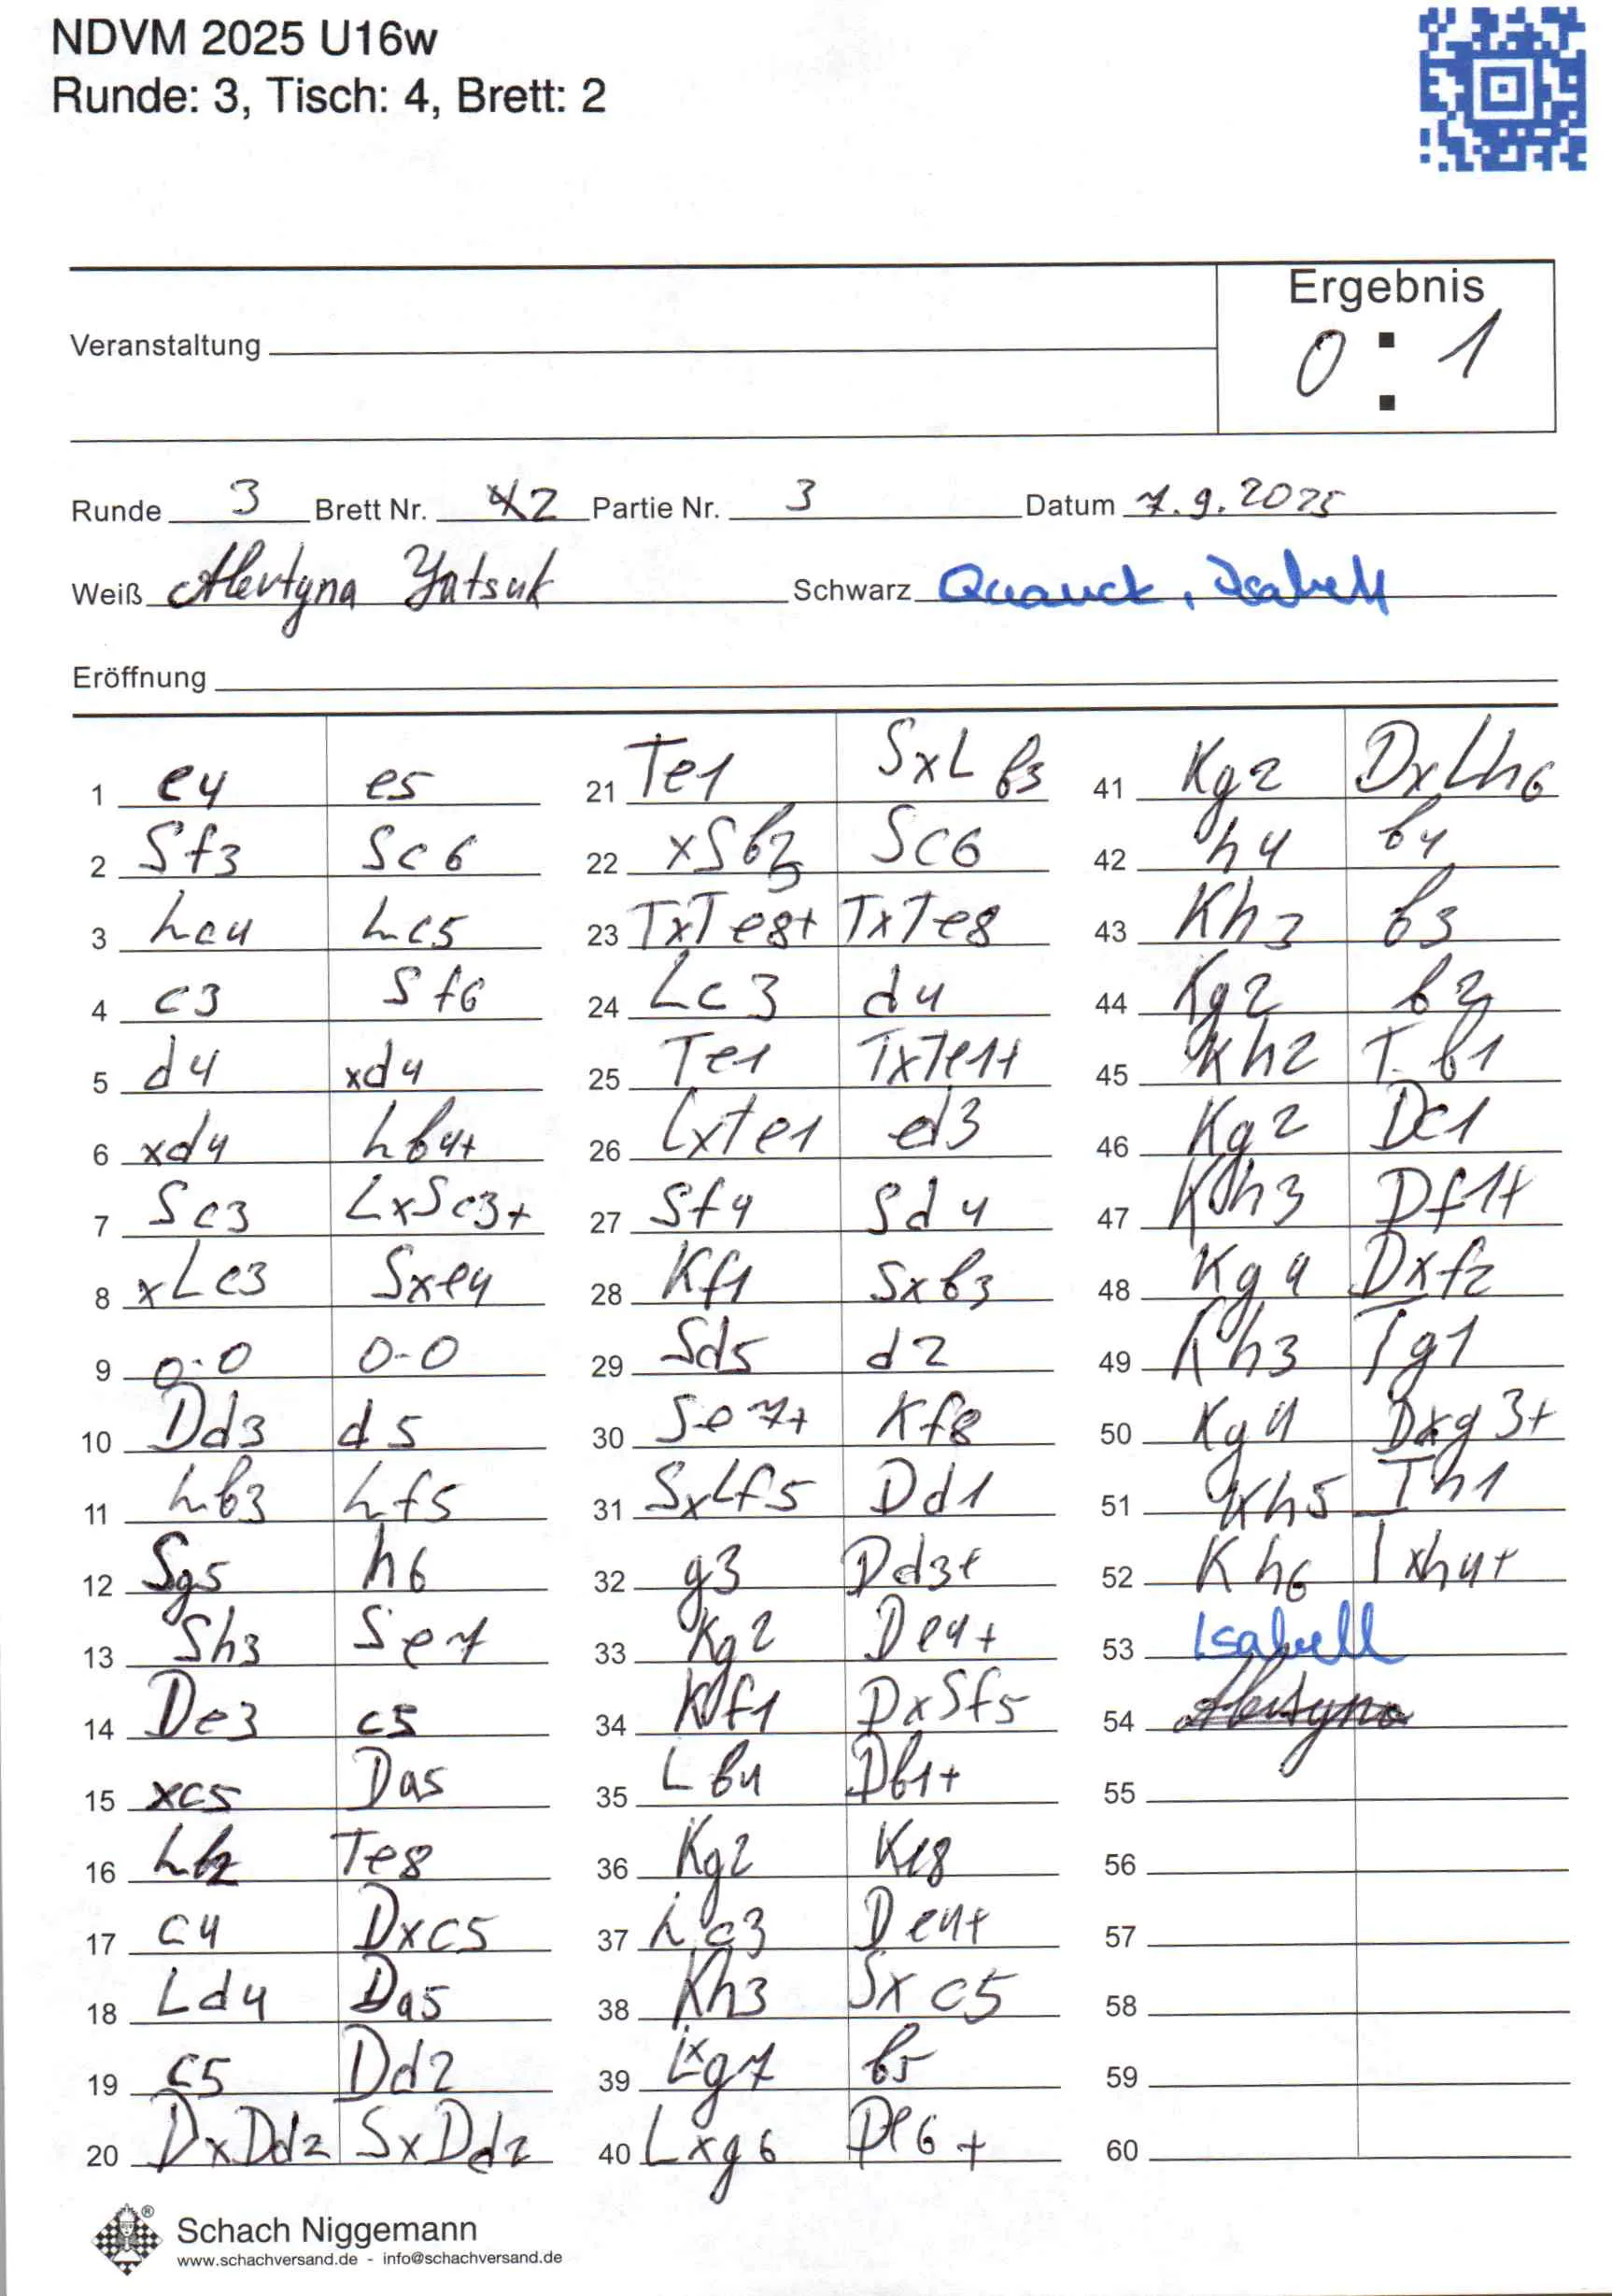 NDVM 2025 U16w
Runde: 3, Tisch: 4, Brett: 2
Ergebnis
Veranstaltung
0 : 1
Runde 3 Brett Nr. 2 Partie Nr. 3 Datum 7.9.2025
Weiß Alevtyna Yatsuk Schwarz Quauck, Isabell
Eröffnung
1 e4 e5
2 Sf3 Sc6
3 Lc4 Lc5
4 c3 Sf6
5 d4 xd4
6 xd4 Lb4+
7 Sc3 LxSc3+
8 xLc3 Sxe4
9 0-0 0-0
10 Dd3 d5
11 Lb3 Lf5
12 Sg5 h6
13 Sh3 Se7
14 De3 c5
15 xc5 Da5
16 Lb2 Te8
17 c4 Dxc5
18 Ld4 Da5
19 c5 Dd2
20 DxDd2 SxDd2
21 Te1 SxLb3
22 xSb3 Sc6
23 TxTe8+ TxTe8
24 Lc3 d4
25 Te1 TxTe1+
26 LxTe1 d3
27 Sf4 Sd4
28 Kf1 Sxb3
29 Sd5 d2
30 Se7+ Kf8
31 SxLf5 Dd1
32 g3 Dd3+
33 Kg2 De4+
34 Kf1 DxSf5
35 Lb4 Db1+
36 Kg2 Ke8
37 Lc3 De4+
38 Kh3 Sxc5
39 Lxg7 b5
40 Lxg6 De6+
41 Kg2 DxLh6
42 h4 b4
43 Kh3 b3
44 Kg2 b2
45 Kh2 T b1
46 Kg2 Dc1
47 Kh3 Df1+
48 Kg4 Dxf2
49 Kh3 Tg1
50 Kg4 Dxg3+
51 Kh5 Th1
52 Kh6 Txh4+
53 Isabell
54 Alevtyna
55
56
57
58
59
60
Schach Niggemann
www.schachversand.de - info@schachversand.de